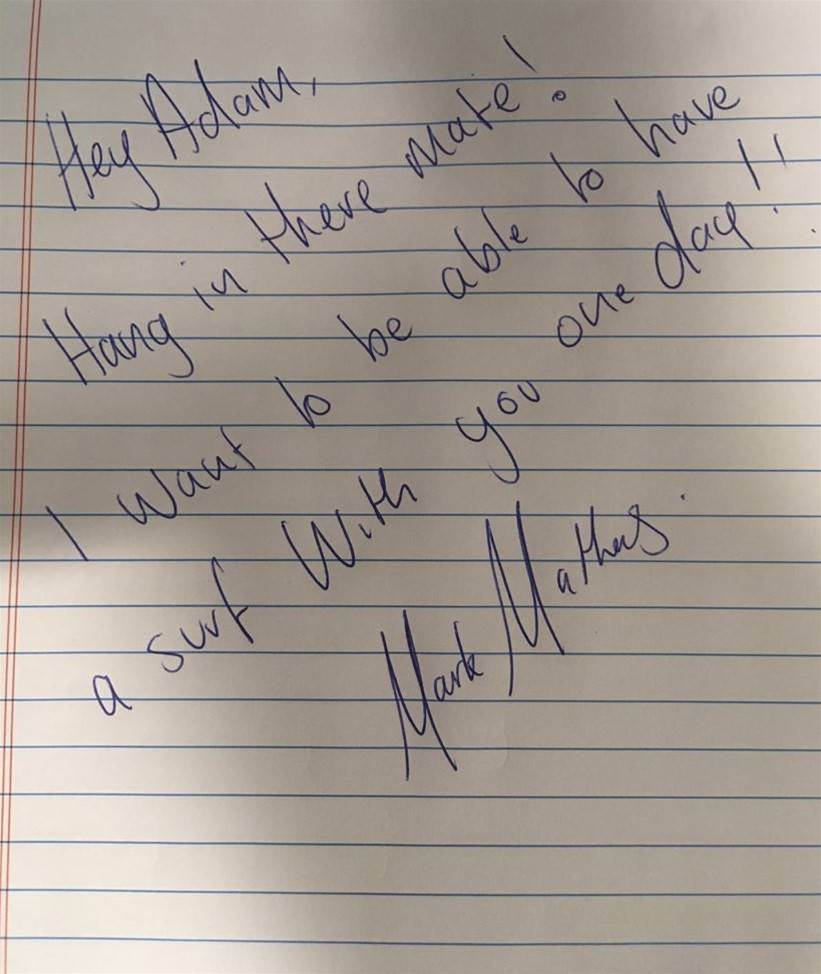 Hey Adam,
Hang in there mate!
I want to be able to have
a surf With you one day!!
Mark Mathews